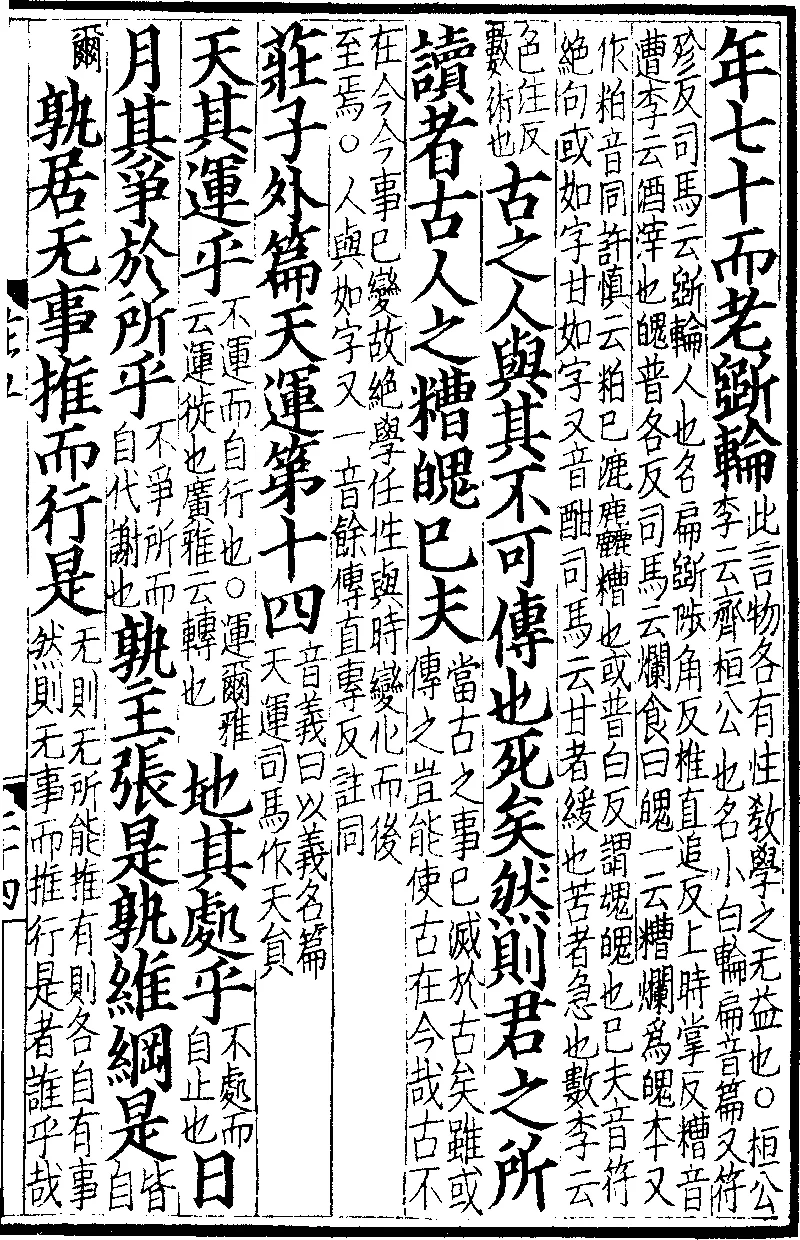 年七十而老斵輪此言物各有性敎學之无益也○桓公李云齊桓公也名小白輪扁音篇又符
殄反司馬云斵輪人也名扁斵陟角反椎直追反上時掌反糟音遭李云酒滓也魄普各反司馬云爛食曰魄一云糟爛爲魄本又
作粕音同許愼云粕已漉麤糟也或普白反謂魂魄也已夫音符絶句或如字甘如字又音酣司馬云甘者緩也苦者急也數李云
色注反數術也古之人與其不可傳也死矣然則君之所
讀者古人之糟魄已夫當古之事已滅於古矣雖或傳之豈能使古在今哉古不
在今今事已變故絶學任性與時變化而後至焉○人與如字又一音餘傳直專反註同
莊子外篇天運第十四音義曰以義名篇天運司馬作天員
天其運乎不運而自行也○運爾雅云運徙也廣雅云轉也地其處乎不處而自止也日
月其爭於所乎不爭所而自代謝也孰主張是孰維綱是皆自
爾孰居无事推而行是无則无所能推有則各自有事然則无事而推行是者誰乎哉